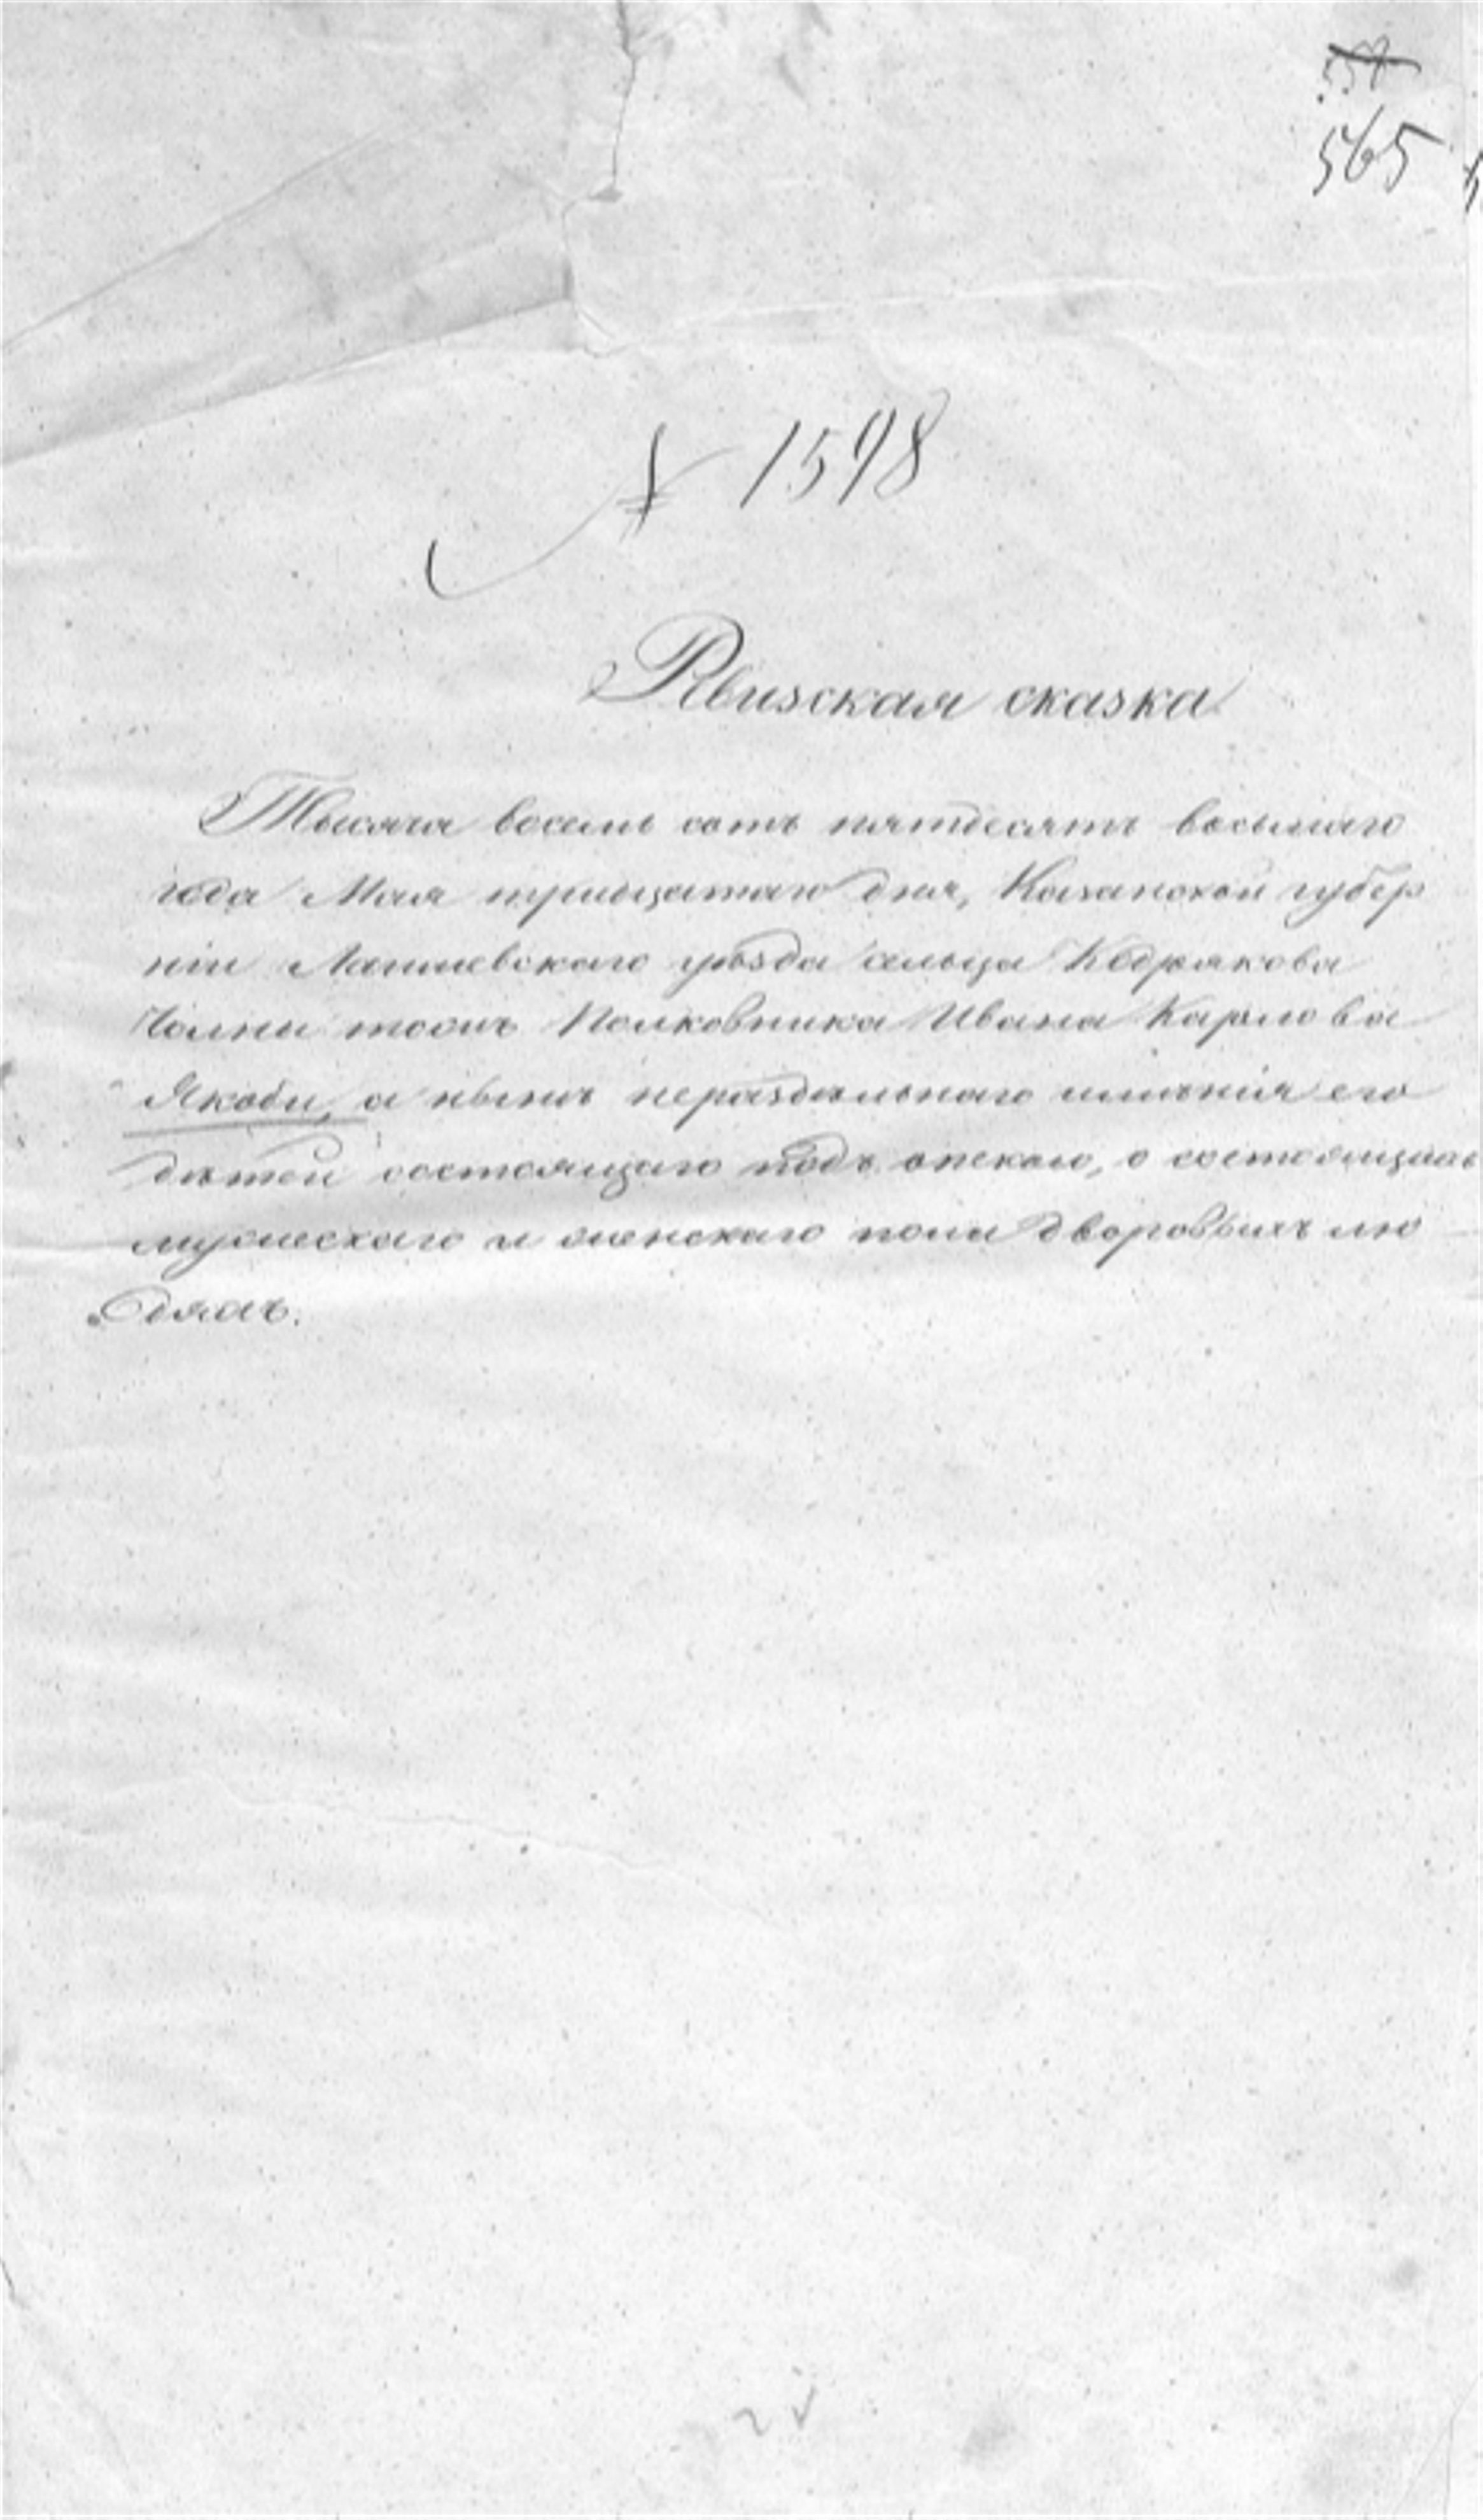 565
№ 1598
Рвизская сказка
Тысяча восемь сотъ пятдесятъ восьмаго
года Мая тридцатаго дня, Казанской губер
ніи Лаишевскаго уѣзда сельца Кедрякова
Чолны тожъ Полковника Ивана Карлова
Якоби, а нынѣ нераздѣльнаго имѣнія его
дѣтей состоящаго подъ опекою, о состоящихъ
мужескаго и женскаго пола дворовыхъ лю
дяхъ.